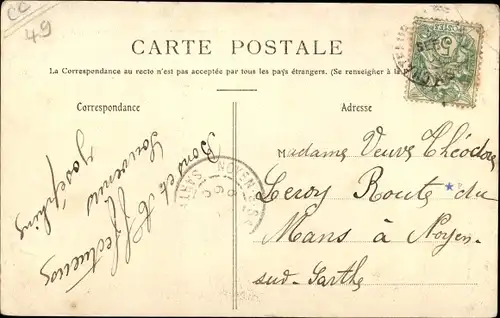 CC
49
CARTE POSTALE
La Correspondance au recto n'est pas acceptée par tous les pays étrangers. (Se renseigner à la
Correspondance
Adresse
Bons et Affectueux
Souvenirs
Joséphine
NOYEN-S-S
SARTHE
Madame Veuve Théodore
Leroy Route du
Mans à Noyen
sud-Sarthe